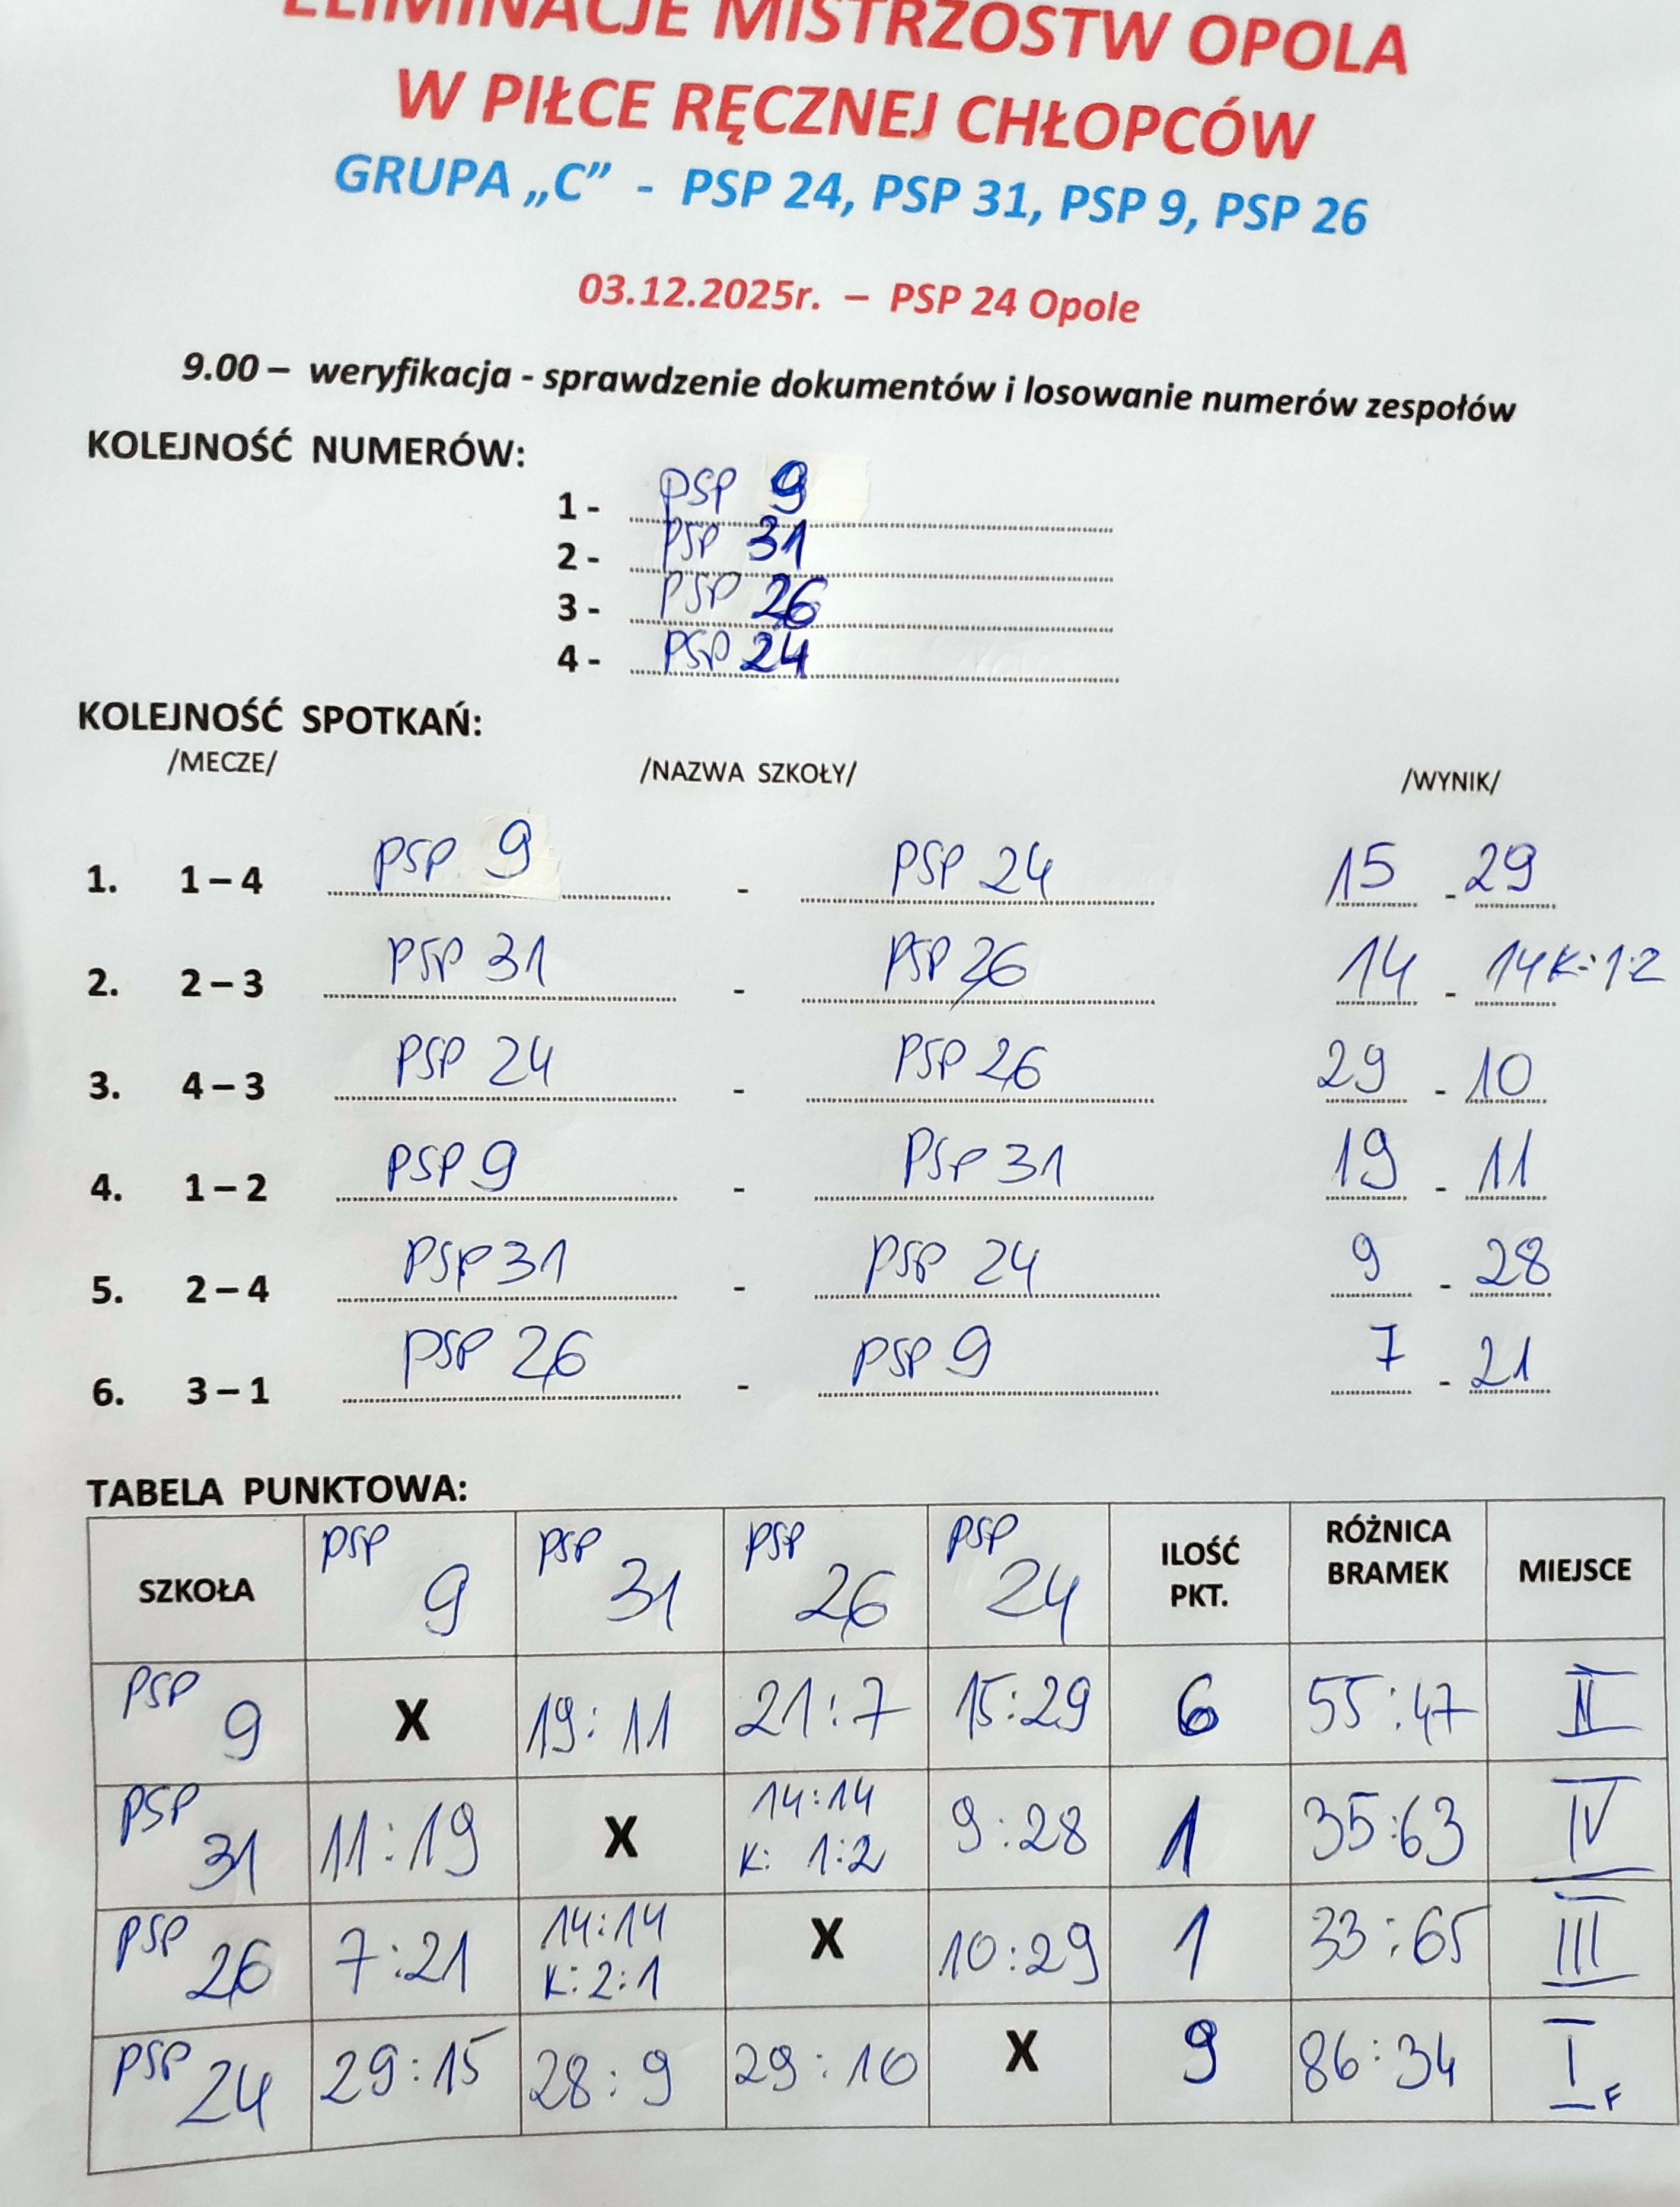 ELIMINACJE MISTRZOSTW OPOLA
W PIŁCE RĘCZNEJ CHŁOPCÓW
GRUPA „C” - PSP 24, PSP 31, PSP 9, PSP 26
03.12.2025r. – PSP 24 Opole
9.00 – weryfikacja - sprawdzenie dokumentów i losowanie numerów zespołów
KOLEJNOŚĆ NUMERÓW:
1 - PSP 9
2 - PSP 31
3 - PSP 26
4 - PSP 24
KOLEJNOŚĆ SPOTKAŃ:
/MECZE/ /NAZWA SZKOŁY/ /WYNIK/
1. 1 – 4 PSP 9 - PSP 24 15 - 29
2. 2 – 3 PSP 31 - PSP 26 14 - 14 K: 1:2
3. 4 – 3 PSP 24 - PSP 26 29 - 10
4. 1 – 2 PSP 9 - PSP 31 19 - 11
5. 2 – 4 PSP 31 - PSP 24 9 - 28
6. 3 – 1 PSP 26 - PSP 9 7 - 21
TABELA PUNKTOWA:
SZKOŁA PSP 9 PSP 31 PSP 26 PSP 24 ILOŚĆ PKT. RÓŻNICA BRAMEK MIEJSCE
PSP 9 X 19:11 21:7 15:29 6 55:47 II
PSP 31 11:19 X 14:14 K: 1:2 9:28 1 35:63 IV
PSP 26 7:21 14:14 K: 2:1 X 10:29 1 33:65 III
PSP 24 29:15 28:9 29:10 X 9 86:34 I F